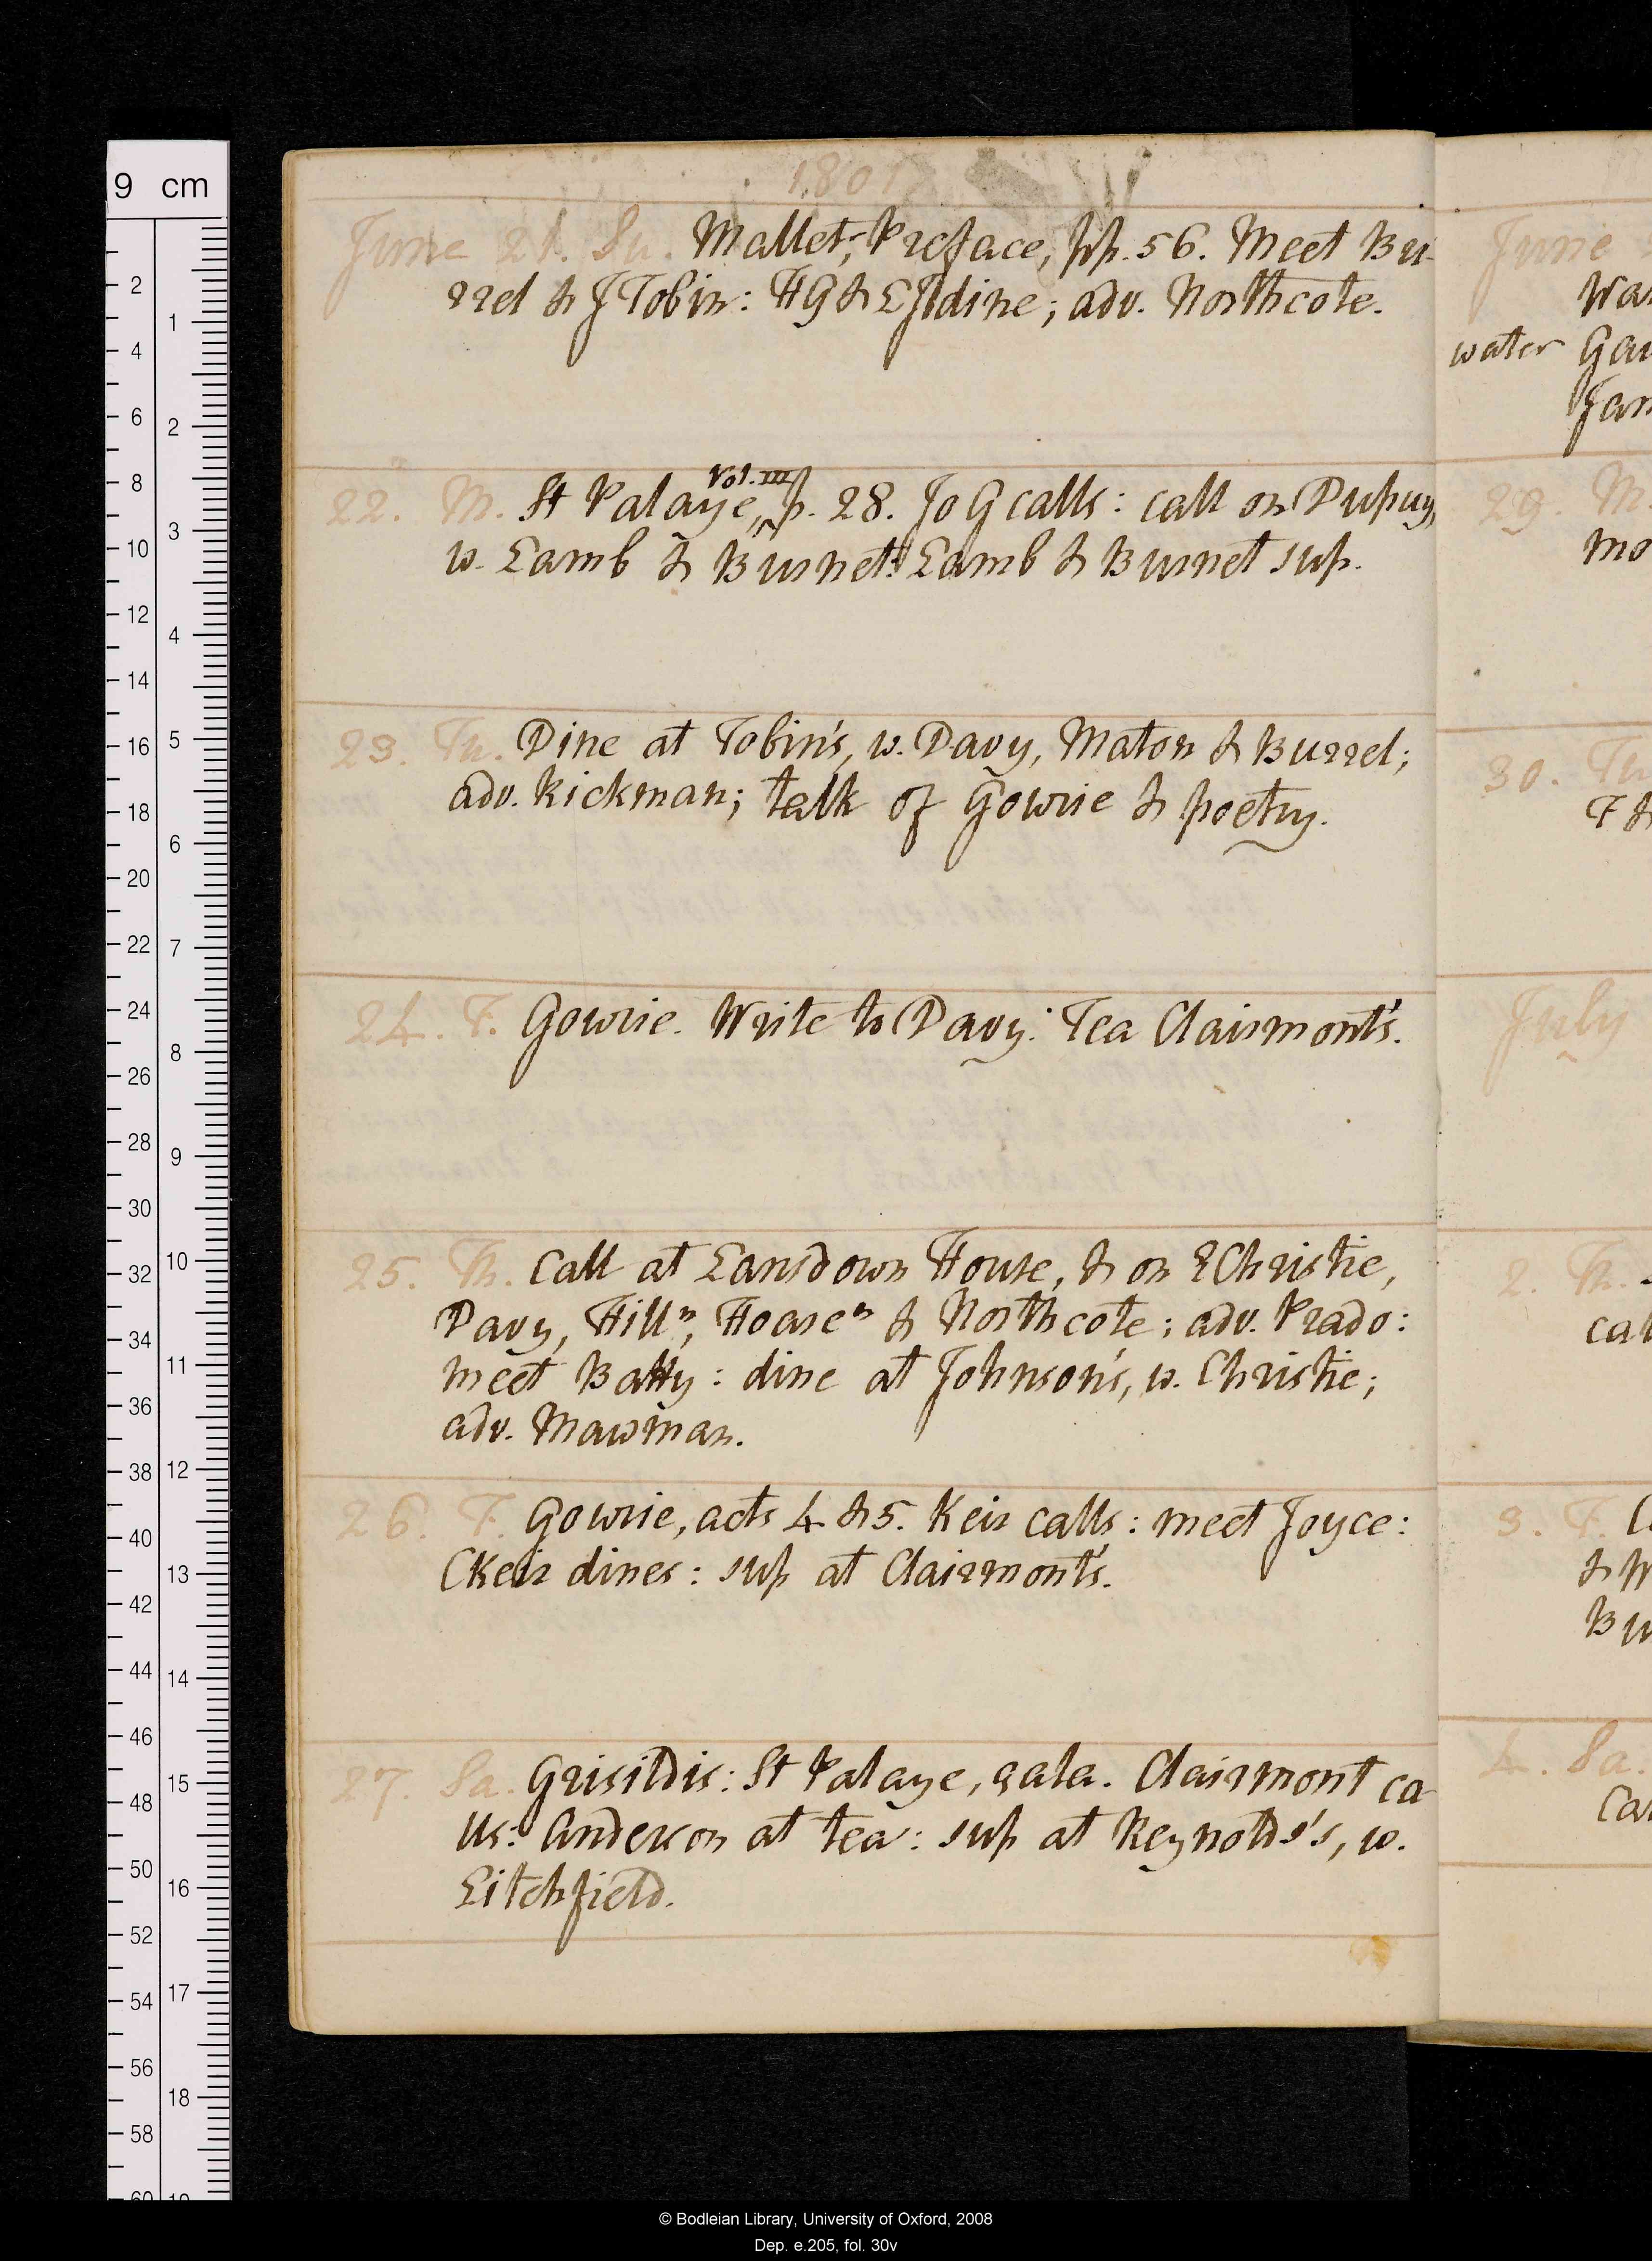 1801
June 21. Su. Mallet, Preface, pp. 56. Meet Bu-
rrel & J Tobin: HG & LJ dine; adv. Northcote.
22. M. St Palaye, Vol. III, p. 28. Jo G calls: call on Dupuy,
w. Lamb & Burnet: Lamb & Burnet sup.
23. Tu. Dine at Tobin's, w. Davy, Maton & Burrel;
adv. Rickman; talk of Gowrie & poetry.
24. F. Gowrie. Write to Davy: Tea Clairmont's.
25. Th. Call at Lansdown House, & on R Christie,
Davy, Hill n, Hoare n & Northcote; adv. Prado:
meet Batty: dine at Johnson's, w. Christie;
adv. Mawman.
26. F. Gowrie, acts 4 & 5. Keir calls: meet Joyce:
C Keir dines: sup at Clairmont's.
27. Sa. Grisildis: St Palaye, çala. Clairmont ca-
lls: Anderson at tea: sup at Reynolds's, w.
Litchfield.
June
Wa
water Gau
Jam
29. M.
mo
30. Tu
F &
July
2. Th.
cal
3. F. C
& W
Bu
4. Sa.
Ca
9 cm
2
4
6
8
10
12
14
16
18
20
22
24
26
28
30
32
34
36
38
40
42
44
46
48
50
52
54
56
58
60
1
2
3
4
5
6
7
8
9
10
11
12
13
14
15
16
17
18
19
© Bodleian Library, University of Oxford, 2008
Dep. e.205, fol. 30v